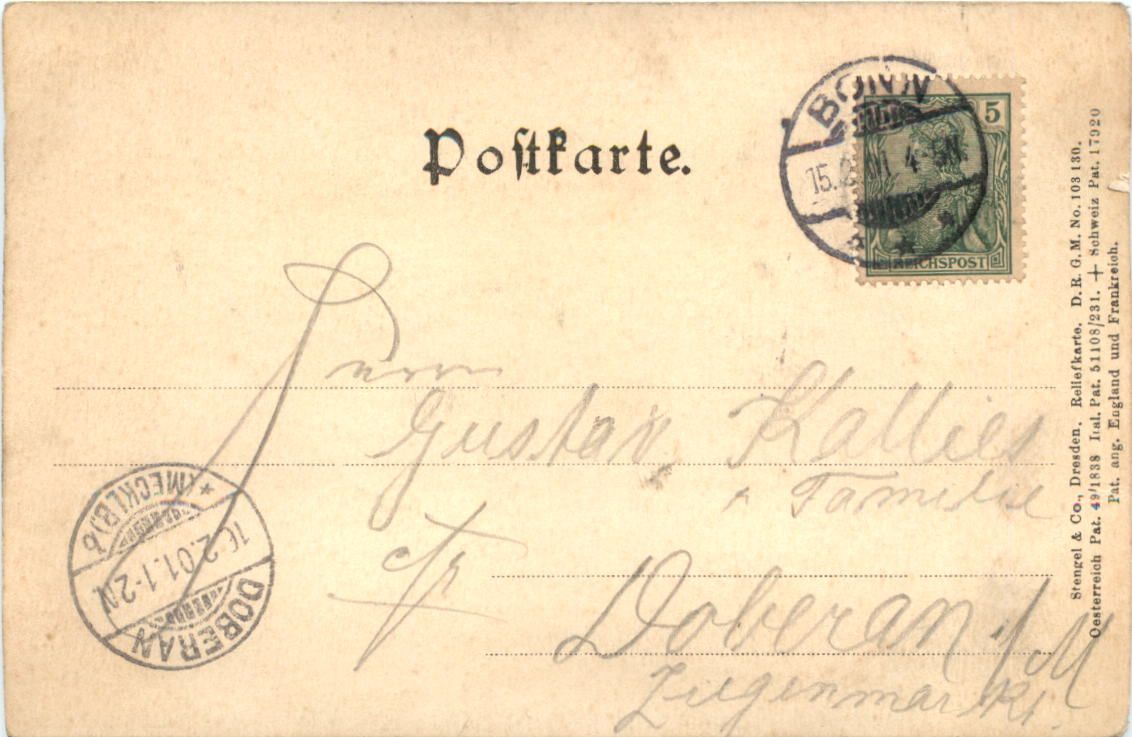 Postkarte.
BONN
15.2.01. 4-5N.
5
REICHSPOST
Herrn
Gustav Kallies
u. Familie
Doberan i/M
Ziegenmarkt.
DOBERAN
16.2.01.1-2N
* (MECKLB) b
Stengel & Co., Dresden. Reliefkarte. D. R. G. M. No. 103 130.
Oesterreich Pat. 49/1838 Ital. Pat. 51108/231. + Schweiz Pat. 17920
Pat. ang. England und Frankreich.